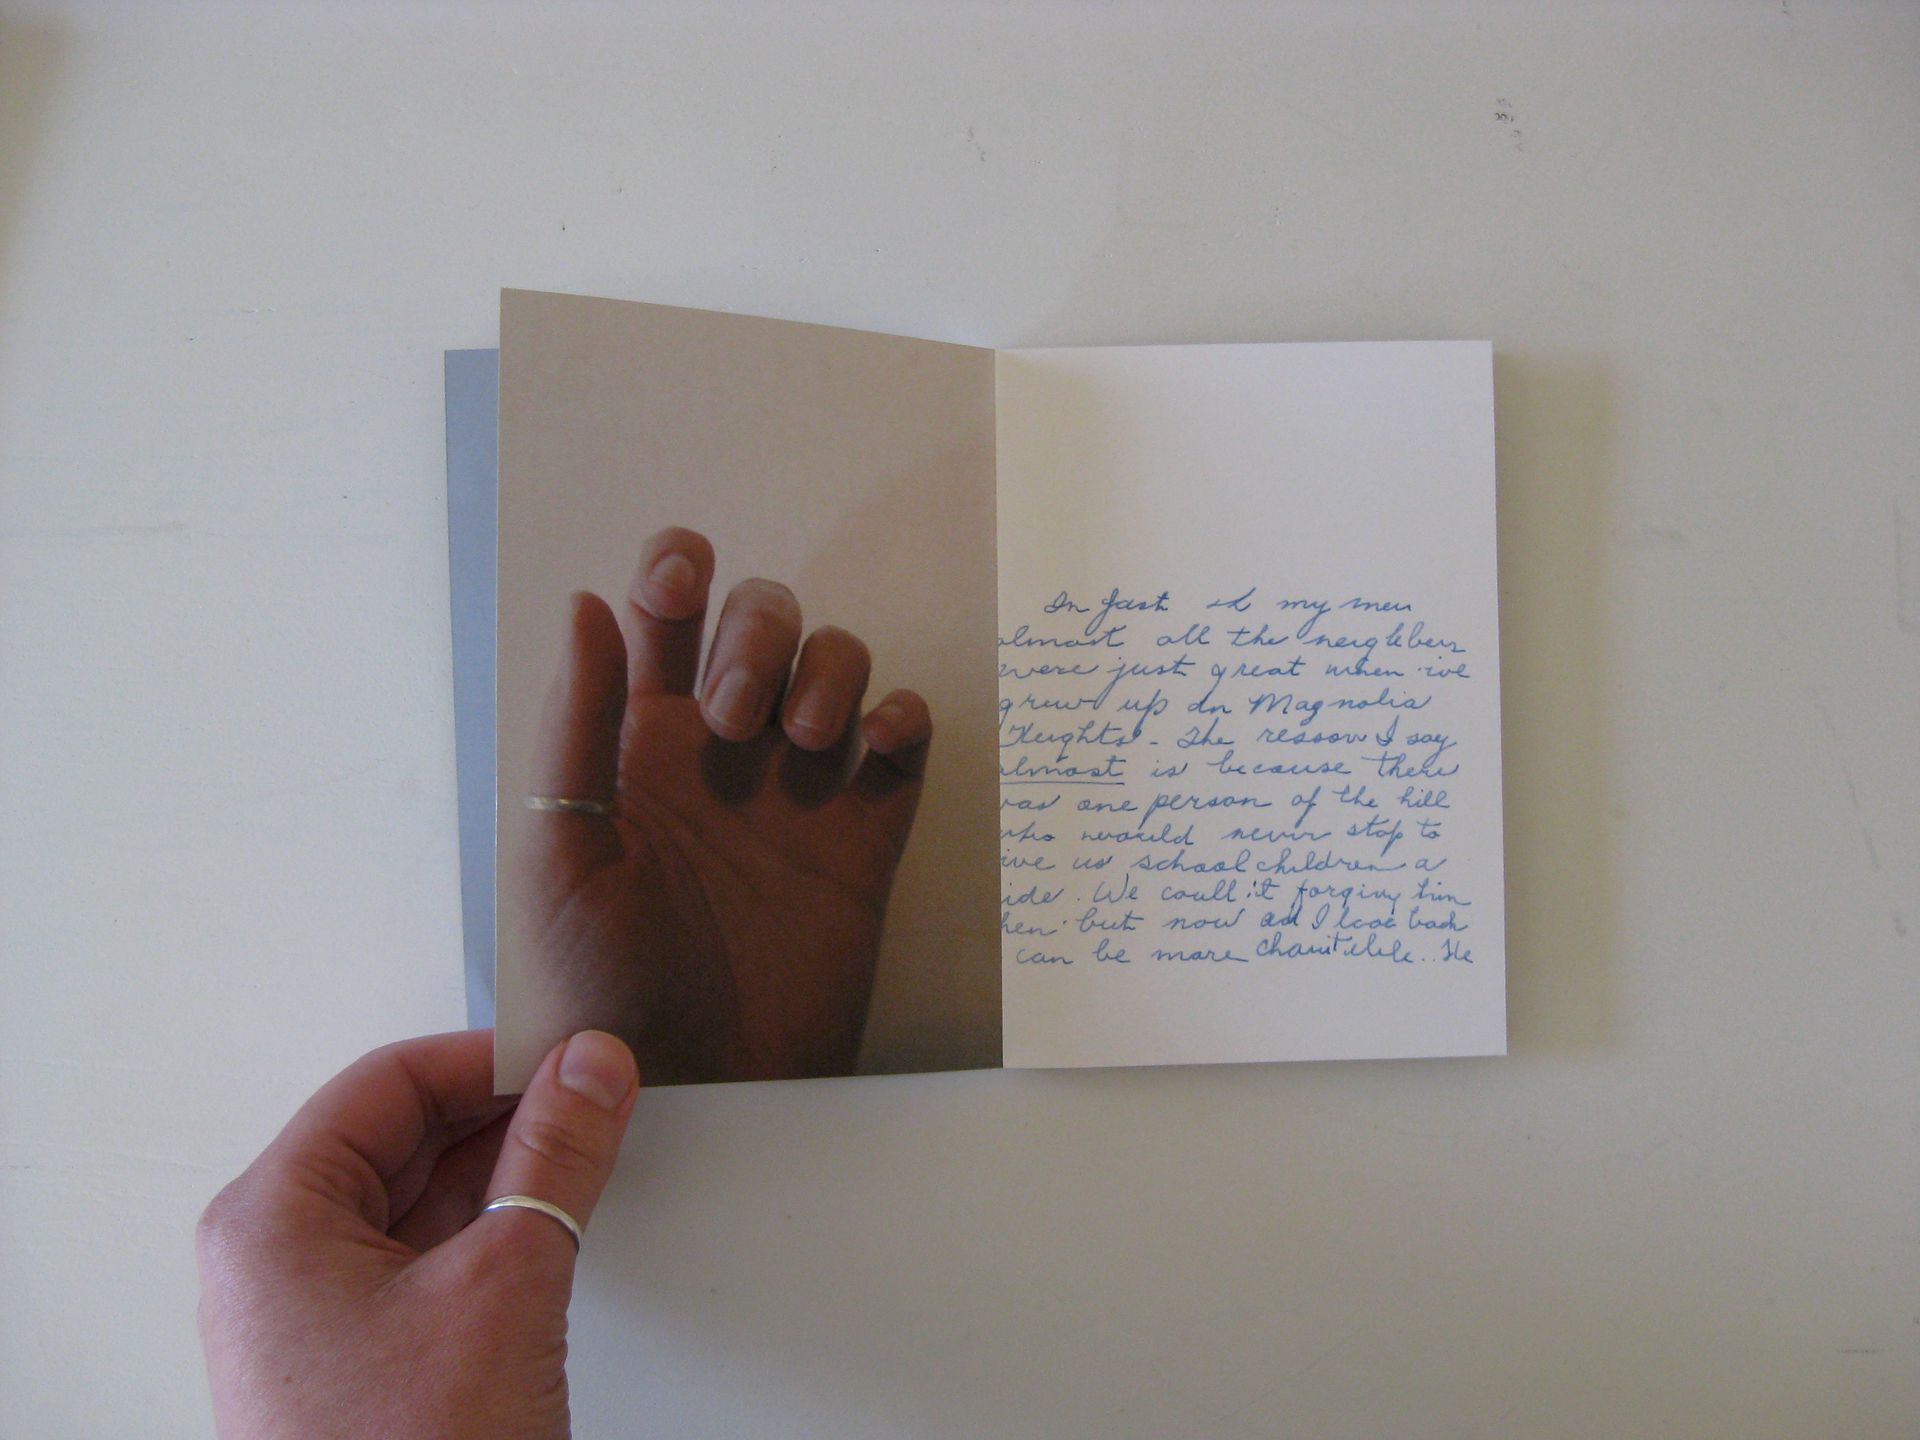 In fast my men
almost all the neighbers
were just great when we
grew up in Magnolia
Heights - The reason I say
almost is because there
was one person of the hill
who would never stop to
ive us school children a
ide. We could it forgive him
hen but now as I look back
can be more charitible.. He